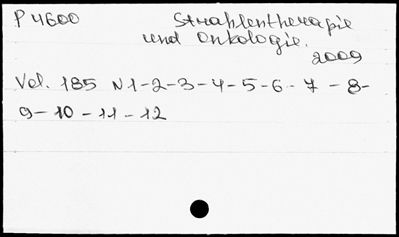 P 4600 Strahlentherapie
und Onkologie.
2009
Vol. 185 N1-2-3-4-5-6-7-8-
9-10-11-12